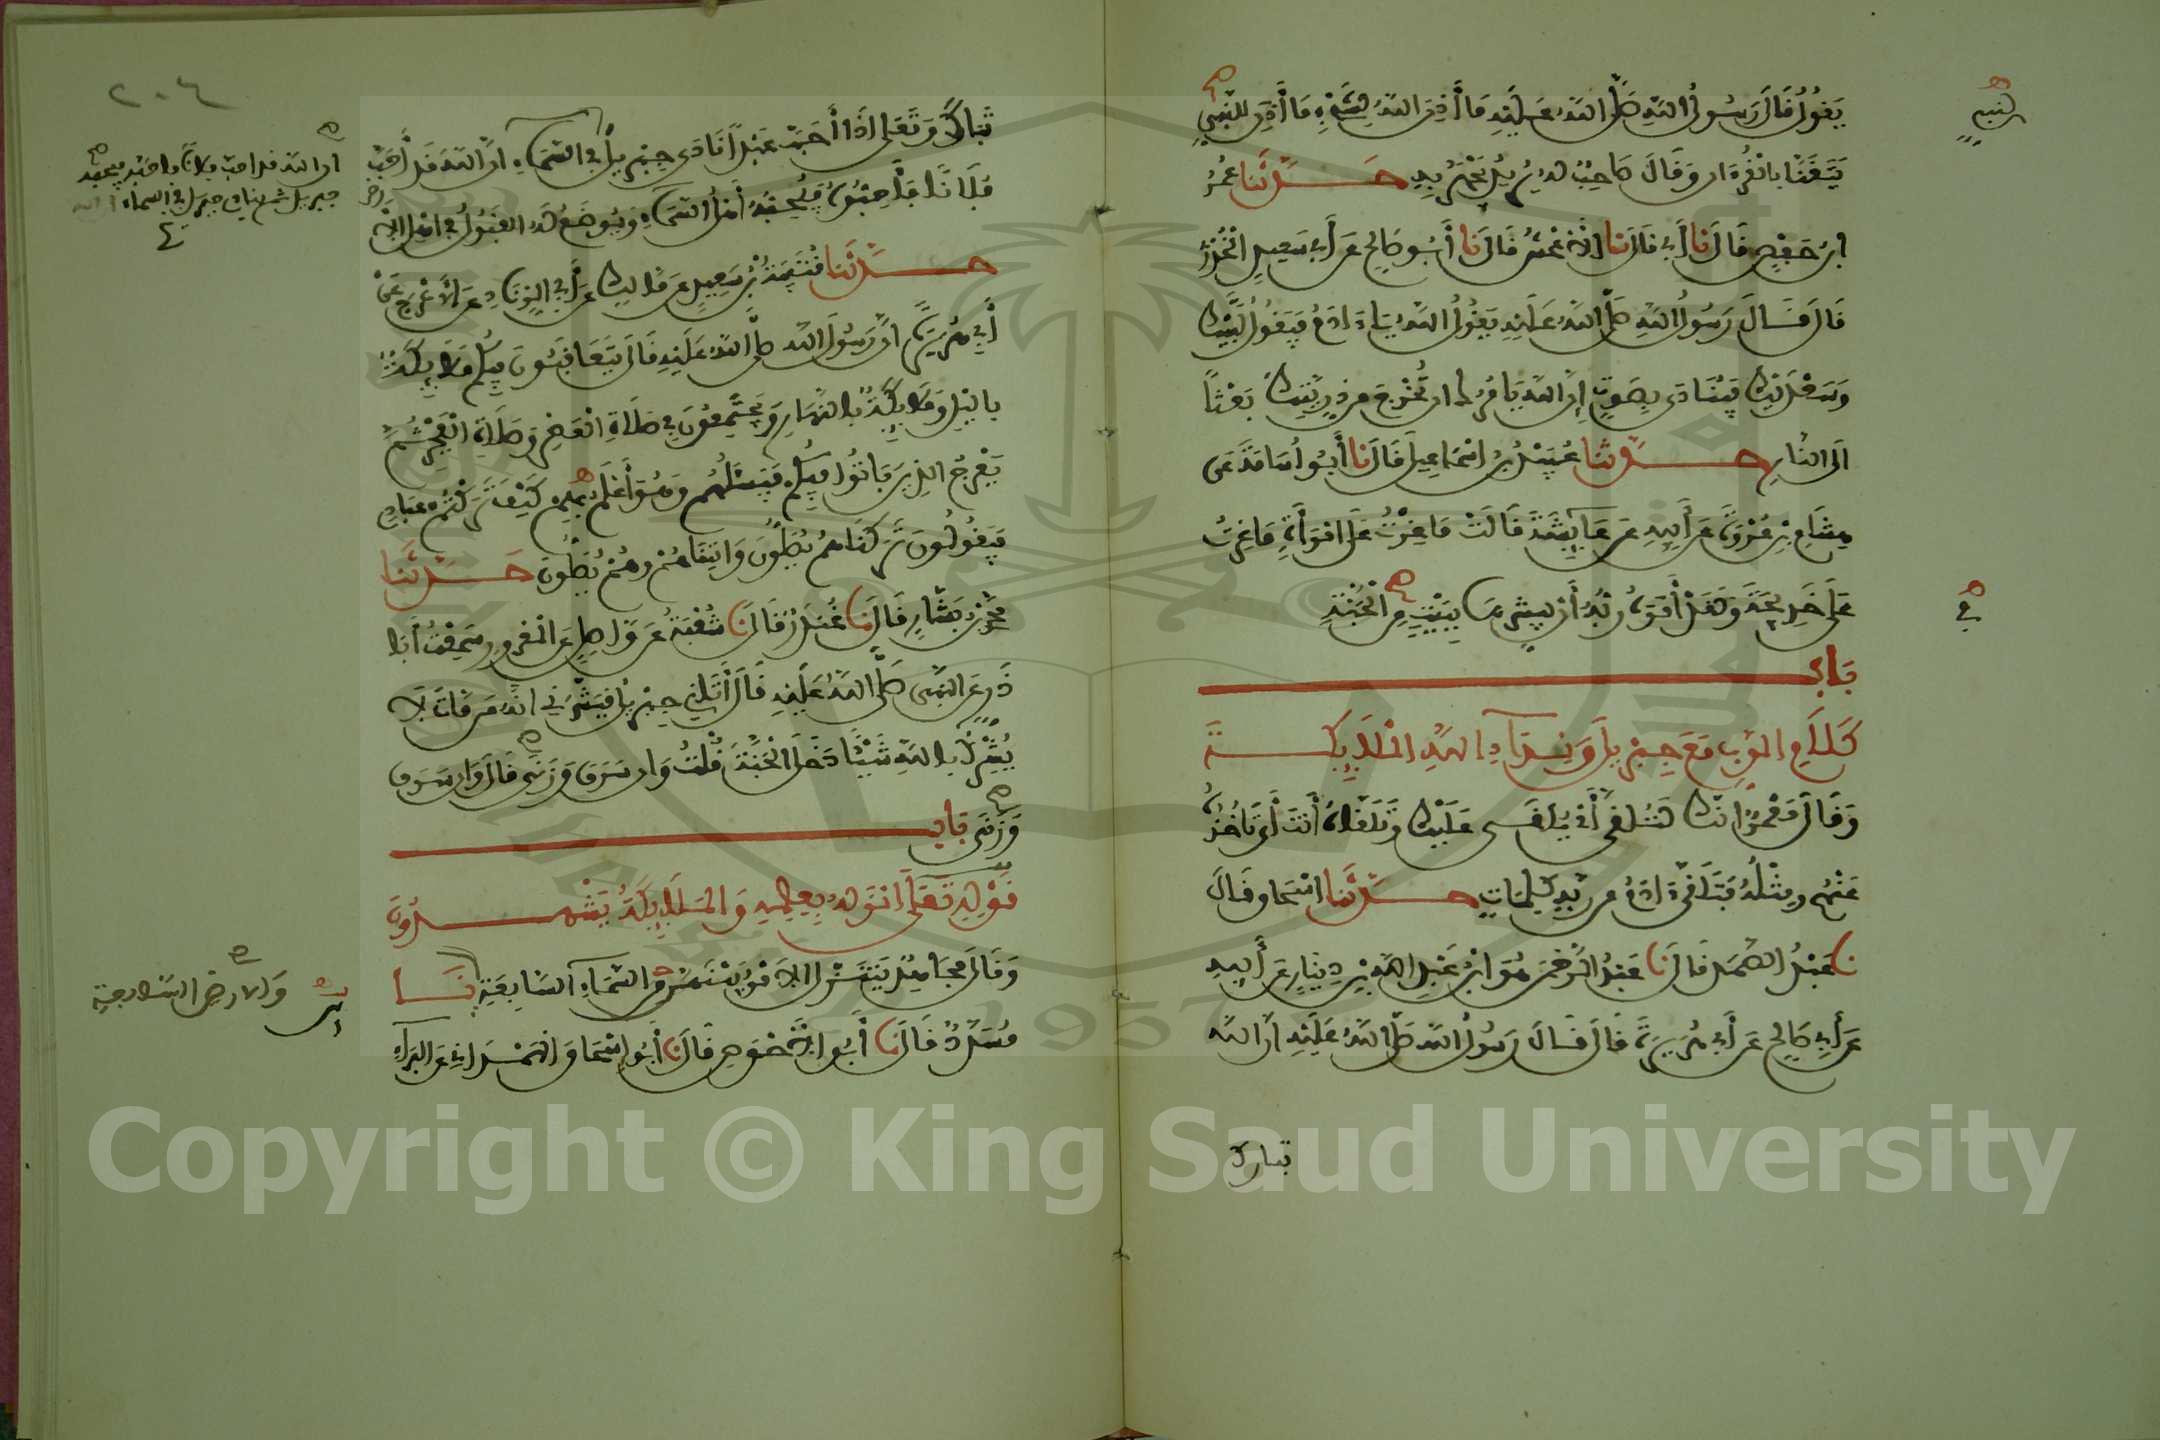 يقول قال رسول الله صلى الله عليه ما أذن الله لشيء ما أذن للنبي
لنبي
يتغنا بالقرءان وقال صاحب له يريد يجهر به حدثنا عمر
ابن حفص قال نا أبي قال نا الاعمش قال نا أبو صالح عن أبي سعيد الخدري
قال قال رسول الله صلى الله عليه يقول الله يا ءادم فيقول لبيك
وسعديك فينادى بصوت إن الله يامرك ان تخرج من ذريتك بعثا
الى النار حدثنا عبيد بن اسماعيل قال نا أبو أسامة عن
هشام بن عروة عن أبيه عن عايشة قالت ما غرت على امرأة ما غرت
على خديجة ولقد أمره ربه أن يبشرها ببيت من الجنة
في
باب
كلام الرب مع جبريل ونداء الله الملايكة
وقال معمر وانك لتلقى أي يلقى عليك وتلقاه أنت أي تاخذه
عنهم ومثله فتلقى ءادم من ربه كلمات حدثنا اسحاق قال
نا عبد الصمد قال نا عبد الرحمن هو ابن عبد الله بن دينار عن أبيه
عن أبي صالح عن أبي هريرة قال قال رسول الله صلى الله عليه ان الله
تبارك
٢٠٤
تبارك وتعلى اذا أحب عبدا نادى جبريل في السماء ان الله قد أحب
ان الله قد احب فلانا فاحبه فيحبه
جبريل ثم ينادي جبريل في السماء ان الله
فلانا فأحبوه فيحبه أهل السماء ويوضع له القبول في اهل الارض
حدثنا قتيبة بن سعيد عن مالك عن أبي الزناد عن الأعرج عن
أبي هريرة ان رسول الله صلى الله عليه قال يتعاقبون فيكم ملايكة
بالليل وملايكة بالنهار ويجتمعون في صلاة العصر وصلاة الفجر ثم
يعرج الذين باتوا فيكم فيسئلهم وهو أعلم بهم كيف تركتم عبادي
فيقولون تركناهم يصلون واتيناهم وهم يصلون حدثنا
محمد بن بشار قال نا غندر قال نا شعبة عن واصل عن المعرور سمعت أبا
ذر عن النبي صلى الله عليه قال أتاني جبريل فبشرني انه من مات لا
يشرك بالله شيئا دخل الجنة قلت وان سرق وزنى قال وان سرق
وزنى باب
قوله تعلى انزله بعلمه والملايكة يشهدون
وقال مجاهد يتنزل الامر بينهن من السماء السابعة نا
والارض السابعة
مسدد قال نا أبو الأحوص قال نا أبو اسحاق الهمداني عن البراء